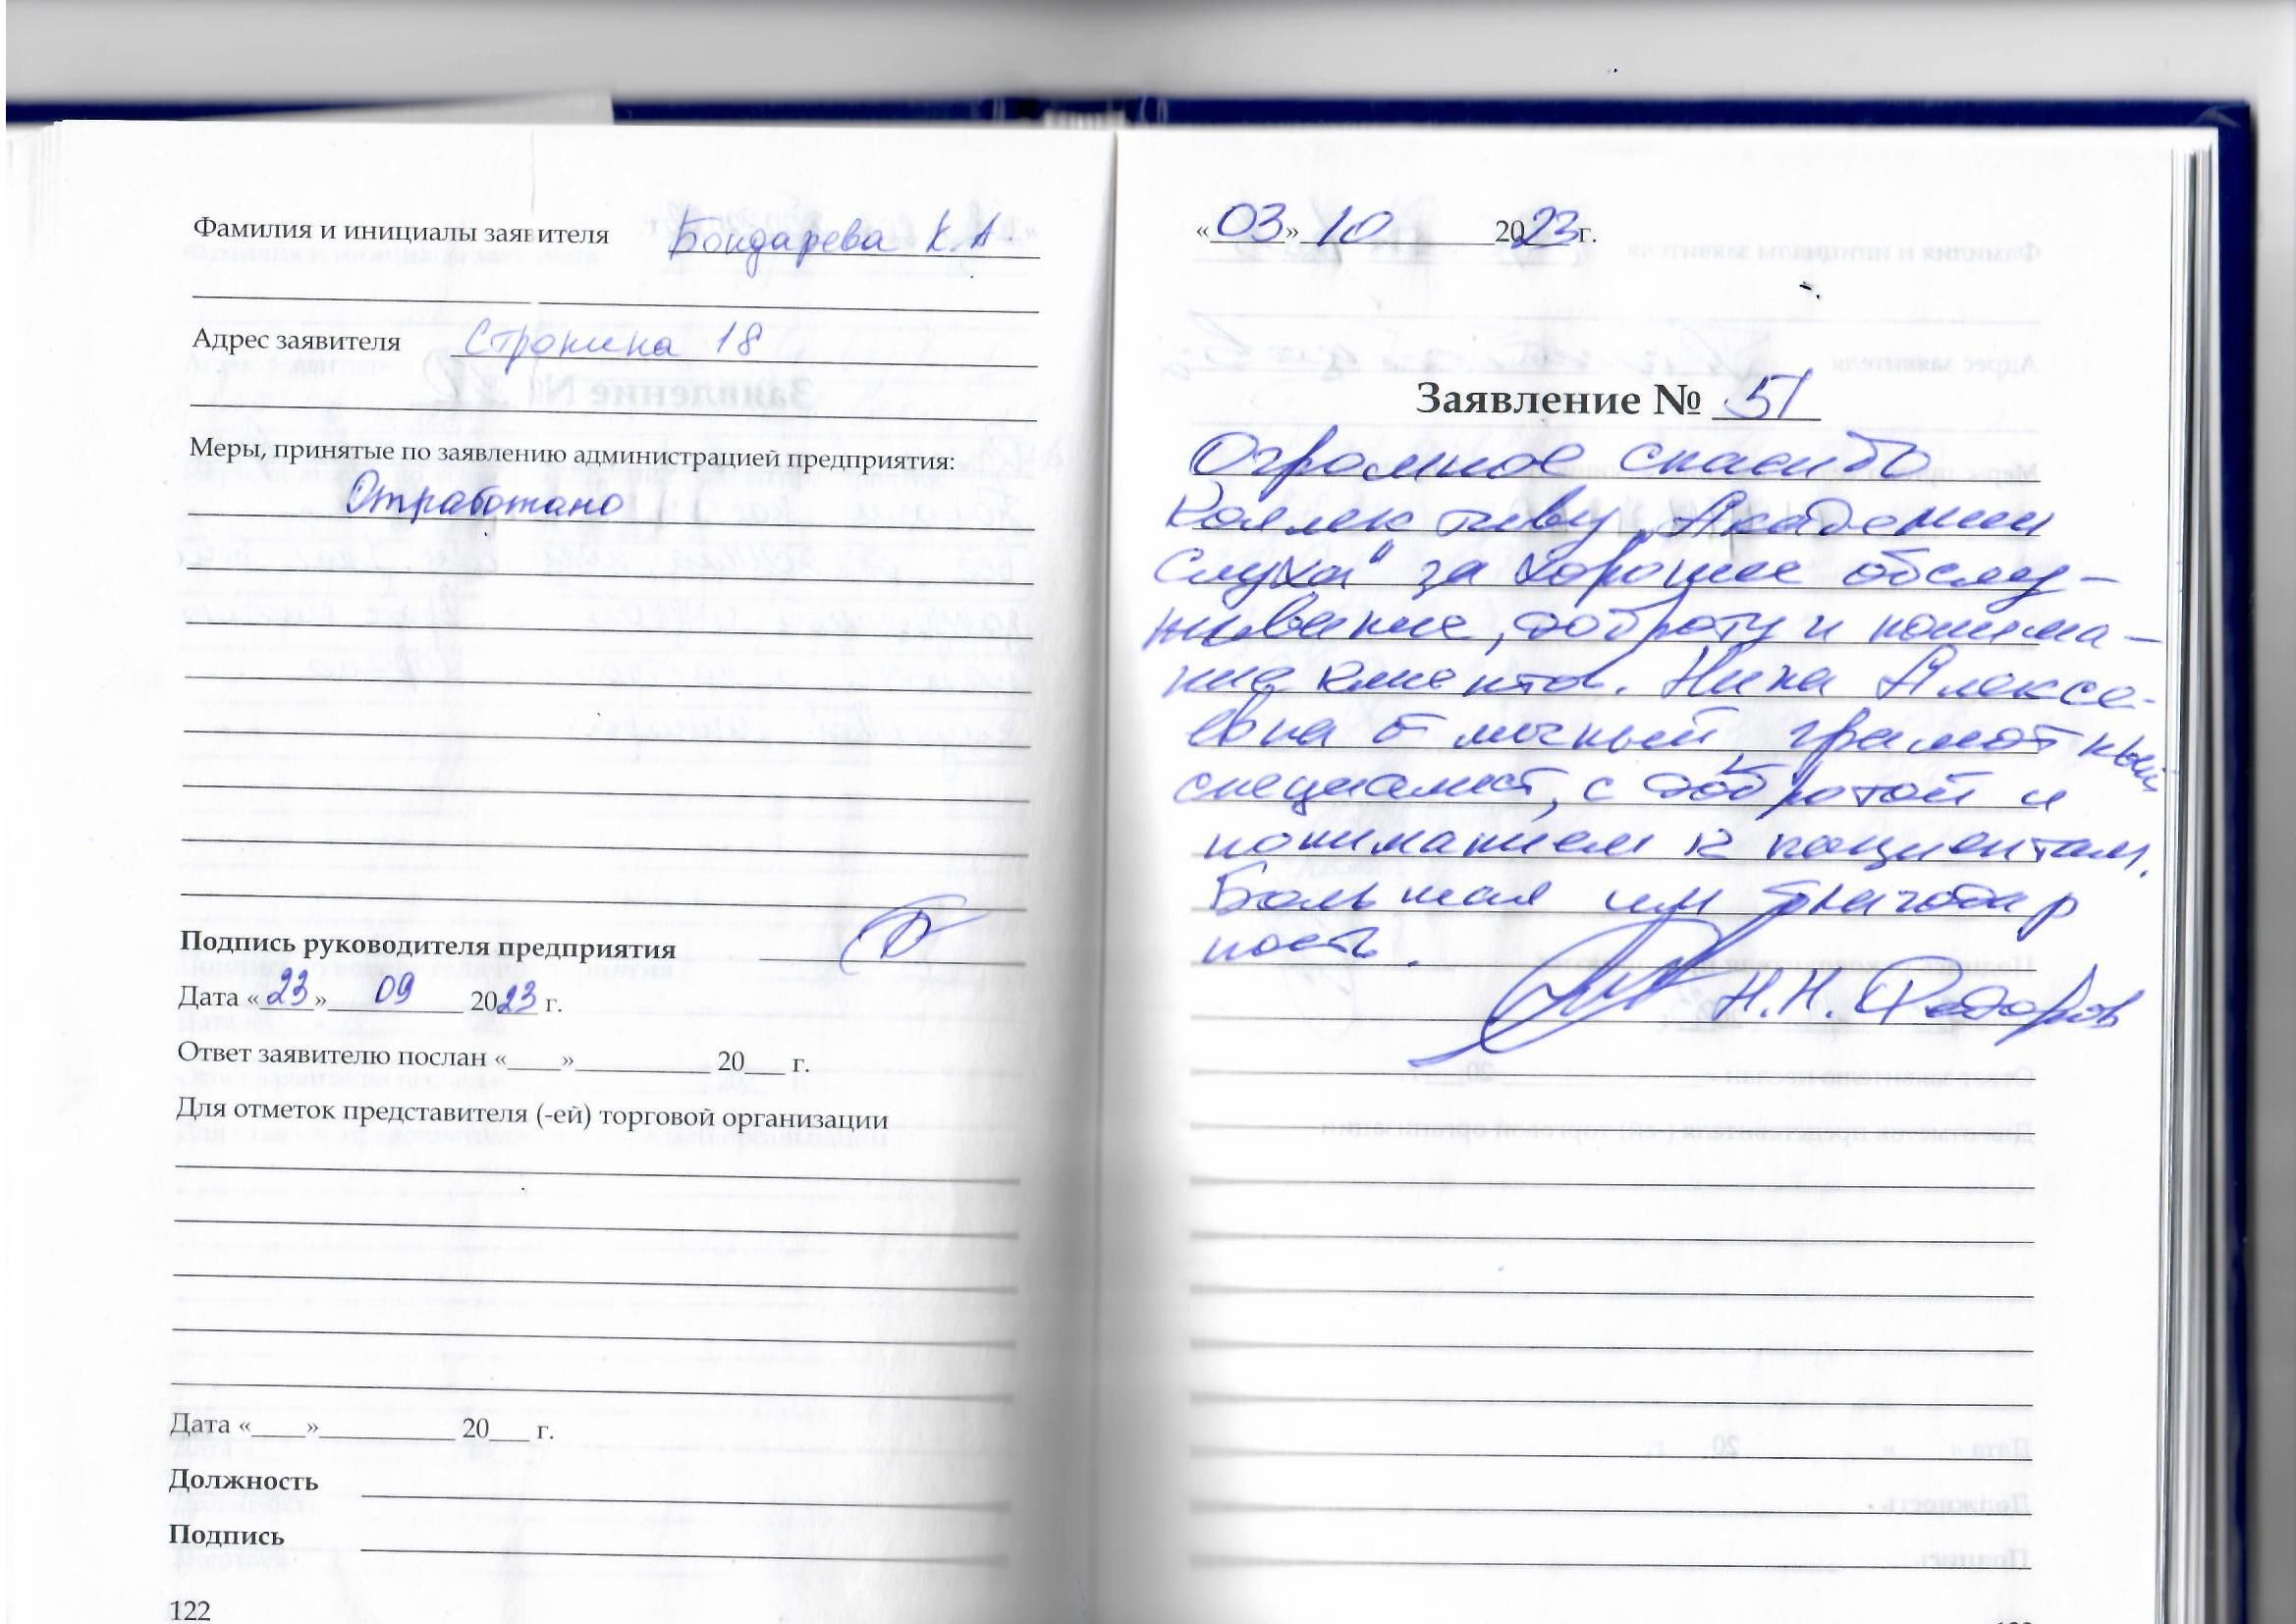 Фамилия и инициалы заявителя Бондарева К.А.
Адрес заявителя Стронина 18
Меры, принятые по заявлению администрацией предприятия:
Отработано
Подпись руководителя предприятия
Дата «23» 09 2023 г.
Ответ заявителю послан «____»__________ 20___ г.
Для отметок представителя (-ей) торговой организации
Дата «____»__________ 20___ г.
Должность
Подпись
122
«03» 10 2023 г.
Заявление № 51
Огромное спасибо
Коллективу „Академии
Слуха" за хорошее обслу-
живание, доброту и понима-
ние клиентов. Нина Алексе-
евна отличный, грамотный
специалист, с добротой и
пониманием к пациентам.
Большая им благодар
ность.
Н.Н. Федоров